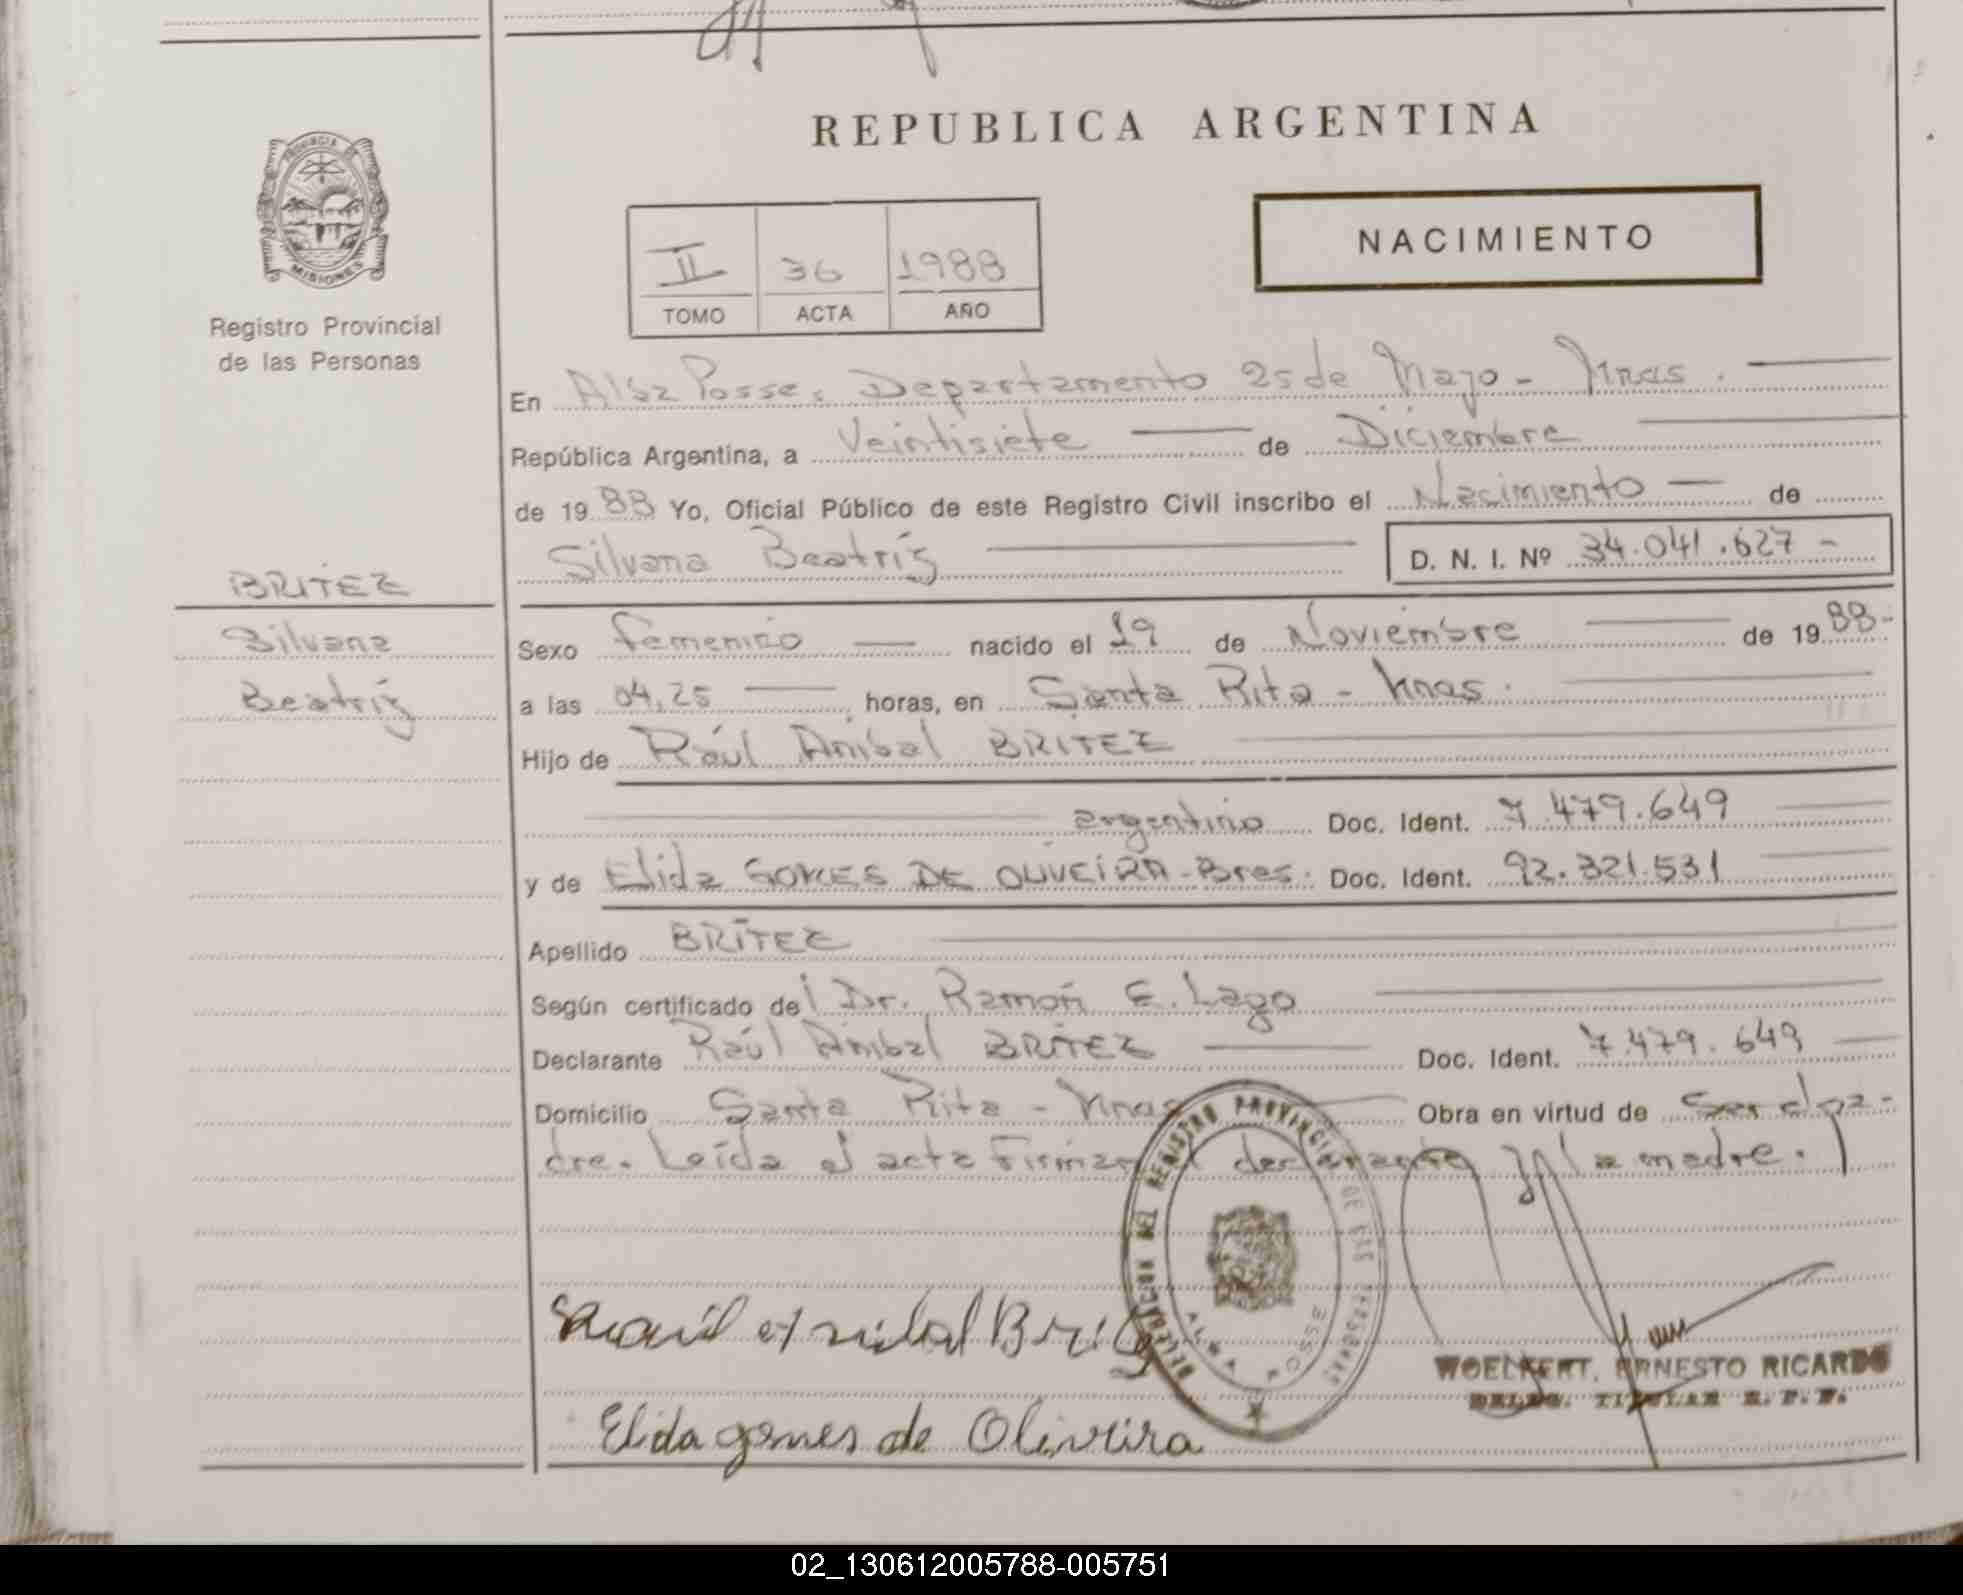 REPUBLICA ARGENTINA
PROVINCIA DE
MISIONES
Registro Provincial
de las Personas
II 36 1988
TOMO ACTA AÑO
NACIMIENTO
En Alba Posse, Departamento 25 de Mayo - Mnas.
República Argentina, a Veintisiete de Diciembre
de 1988 Yo, Oficial Público de este Registro Civil inscribo el Nacimiento de
Silvana Beatríz D. N. I. Nº 34.041.627 -
BRITEZ
Silvana
Beatríz
Sexo femenino nacido el 19 de Noviembre de 1988-
a las 04,25 horas, en Santa Rita - Mnas.
Hijo de Raúl Anibal BRITEZ
argentino Doc. Ident. 7.479.649
y de Elida GOMES DE OLIVEIRA - Bras. Doc. Ident. 92.321.531
Apellido BRITEZ
Según certificado del Dr. Ramón E. Lago
Declarante Raúl Anibal BRITEZ Doc. Ident. 7.479.649
Domicilio Santa Rita - Mnas Obra en virtud de Ser el pa-
dre. Leída el acta Firman el declarante y la madre.
DELEGACION DEL REGISTRO PROVINCIAL DE LAS PERSONAS
ALBA POSSE
WOELFERT, ERNESTO RICARDO
DELEG. TITULAR R. P. P.
Elida gomes de Oliveira
02_130612005788-005751